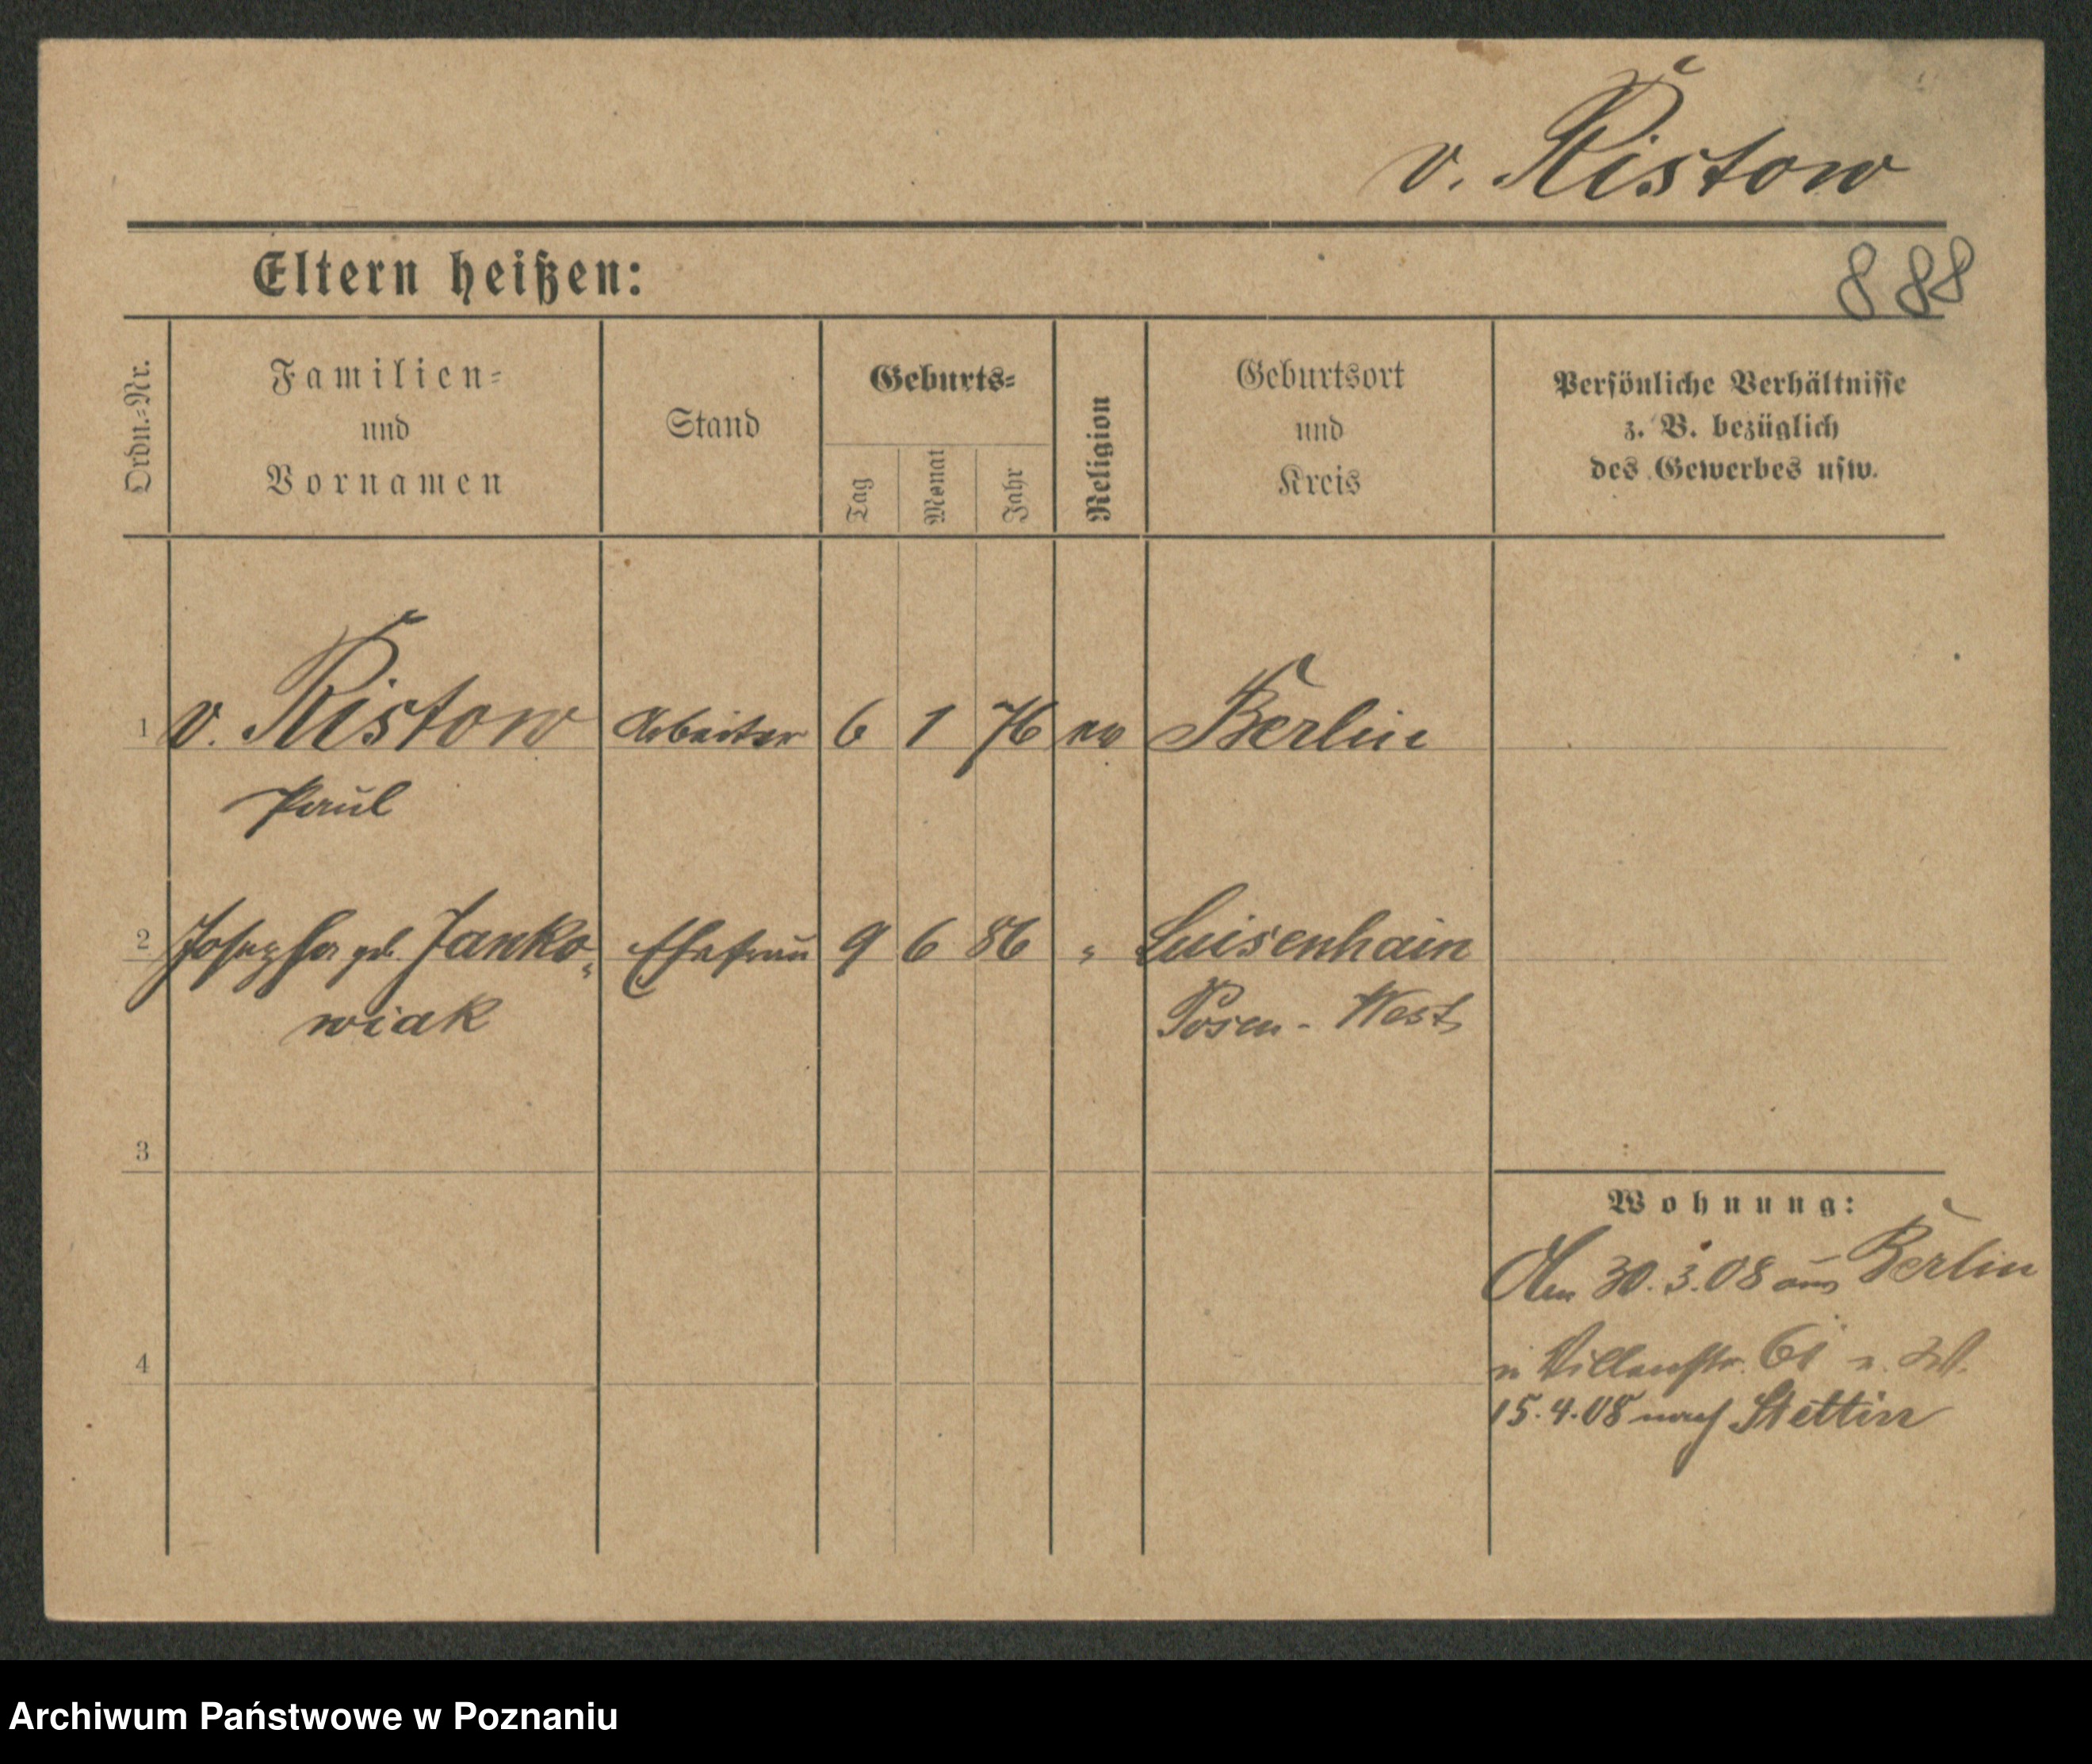 v. Ristow
Eltern heißen:
888
Ordn.-Nr.
Familien-
und
Vornamen
Stand
Geburts-
Tag
Monat
Jahr
Religion
Geburtsort
und
Kreis
Persönliche Verhältnisse
z. B. bezüglich
des Gewerbes usw.
1 v. Ristow Arbeiter 6 1 76 ev Berlin
Paul
2 Josepha geb. Janko- Ehefrau 9 6 86 " Luisenhain
wiak Posen - West
3
Wohnung:
Am 30.3.08 aus Berlin
61
4
15.4.08 nach Stettin
Archiwum Państwowe w Poznaniu